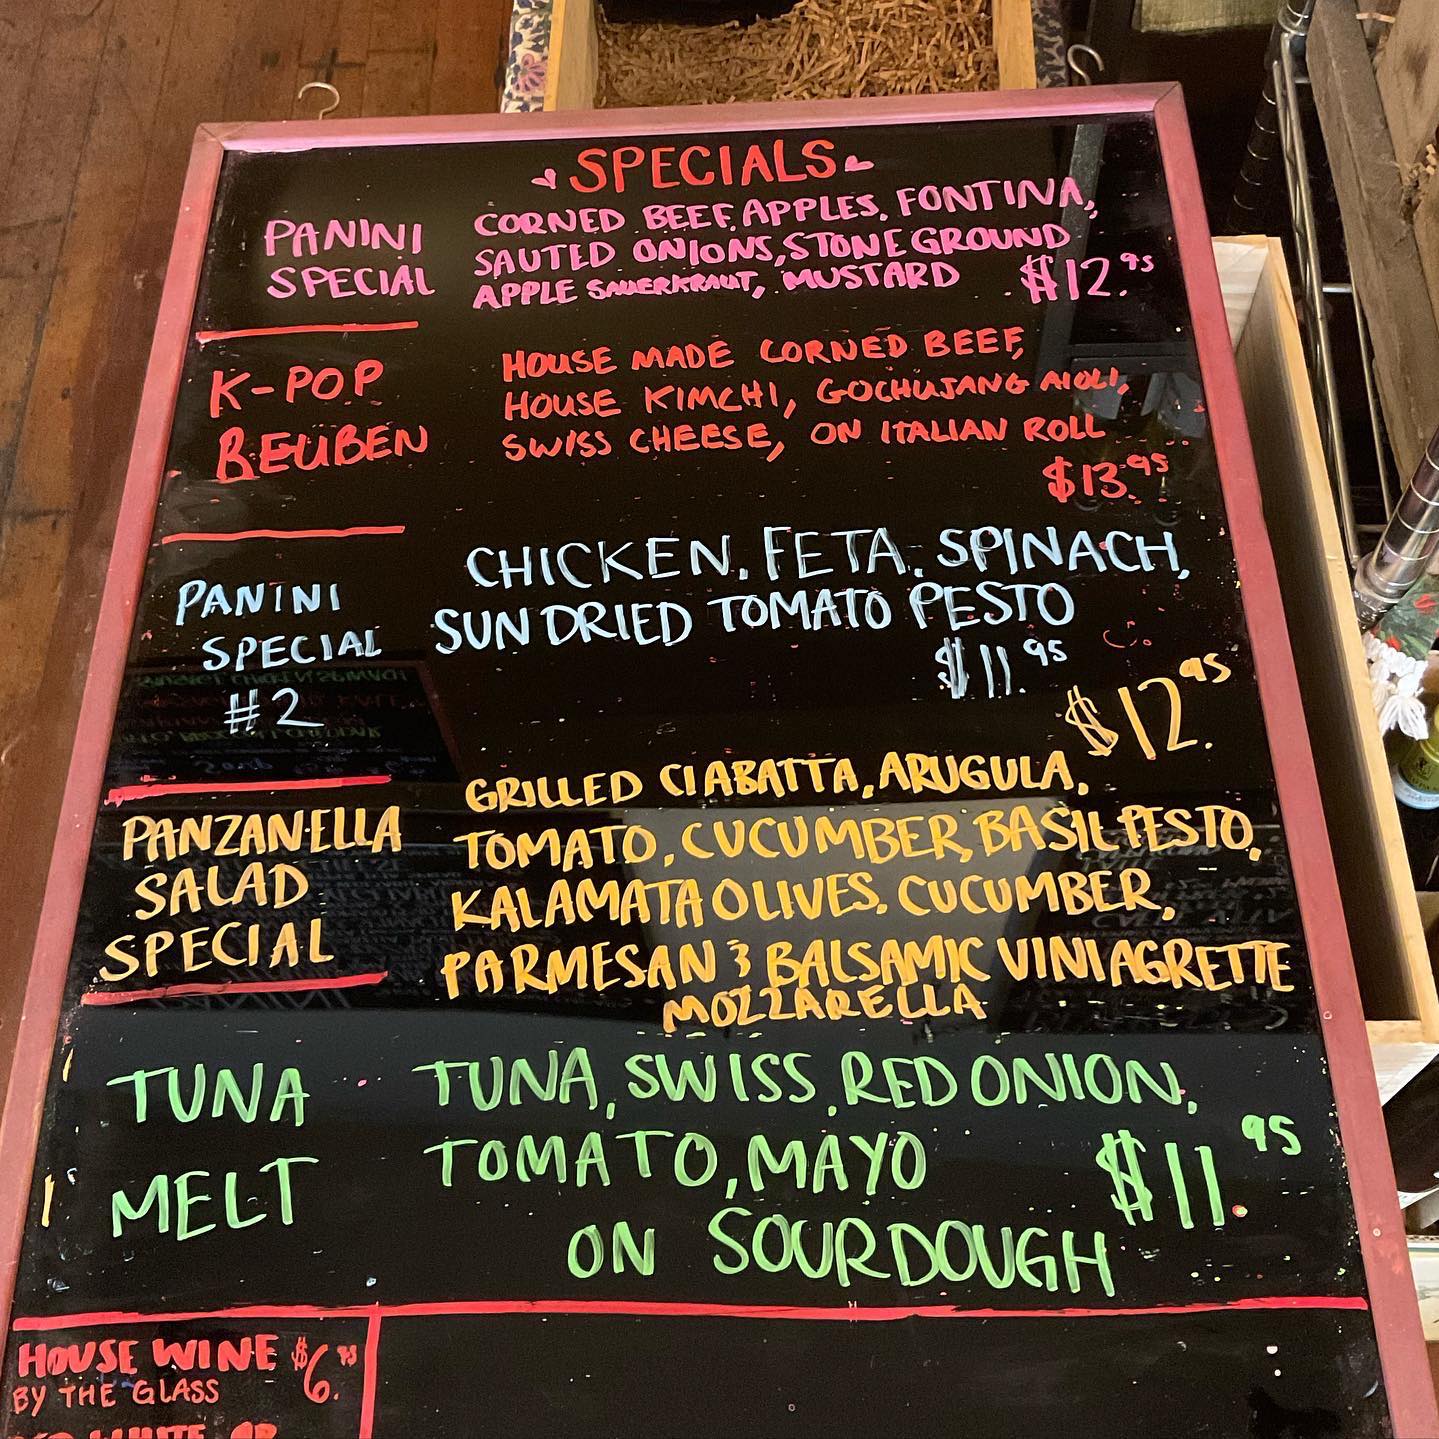 SPECIALS
PANINI
SPECIAL
CORNED BEEF, APPLES, FONTINA,
SAUTED ONIONS, STONE GROUND
APPLE SAUERKRAUT, MUSTARD $12.95
K-POP
REUBEN
HOUSE MADE CORNED BEEF,
HOUSE KIMCHI, GOCHUJANG AIOLI,
SWISS CHEESE, ON ITALIAN ROLL
$13.95
PANINI
SPECIAL
#2
CHICKEN, FETA, SPINACH,
SUN DRIED TOMATO PESTO
$11.95
PANZANELLA
SALAD
SPECIAL
$12.95
GRILLED CIABATTA, ARUGULA,
TOMATO, CUCUMBER, BASIL PESTO,
KALAMATA OLIVES, CUCUMBER,
PARMESAN & BALSAMIC VINIAGRETTE
MOZZARELLA
TUNA
MELT
TUNA, SWISS, RED ONION,
TOMATO, MAYO
ON SOURDOUGH
$11.95
HOUSE WINE $6.95
BY THE GLASS
WHITE OR